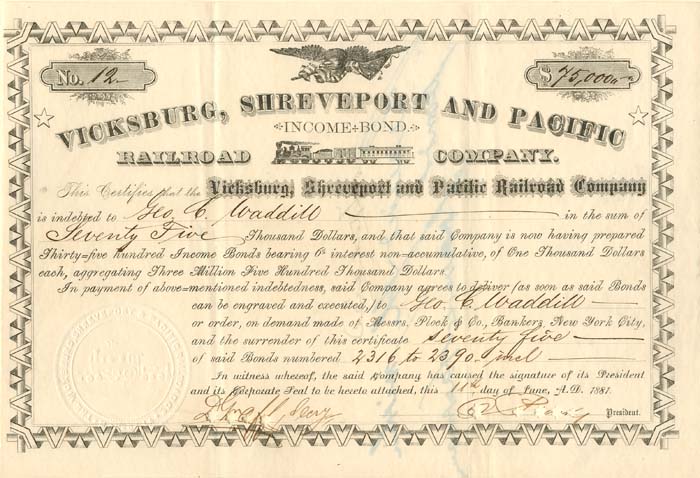 No. 12
$75,000.00
VICKSBURG, SHREVEPORT AND PACIFIC
INCOME BOND.
RAILROAD COMPANY.
This Certifies that the Vicksburg, Shreveport and Pacific Railroad Company
is indebted to Geo. C. Waddill in the sum of
Seventy Five Thousand Dollars, and that said Company is now having prepared
Thirty=five hundred Income Bonds bearing 6% interest non=accumulative, of One Thousand Dollars
each, aggregating Three Million Five Hundred Thousand Dollars.
In payment of above=mentioned indebtedness, said Company agrees to deliver (as soon as said Bonds
can be engraved and executed,) to Geo. C. Waddill
or order, on demand made of Messrs. Plock & Co., Bankers, New York City,
and the surrender of this certificate seventy five
of said Bonds numbered 2316 to 2390 incl
In witness whereof, the said Company has caused the signature of its President
and its Corporate Seal to be hereto attached, this 11th day of June, A.D. 1881.
President.